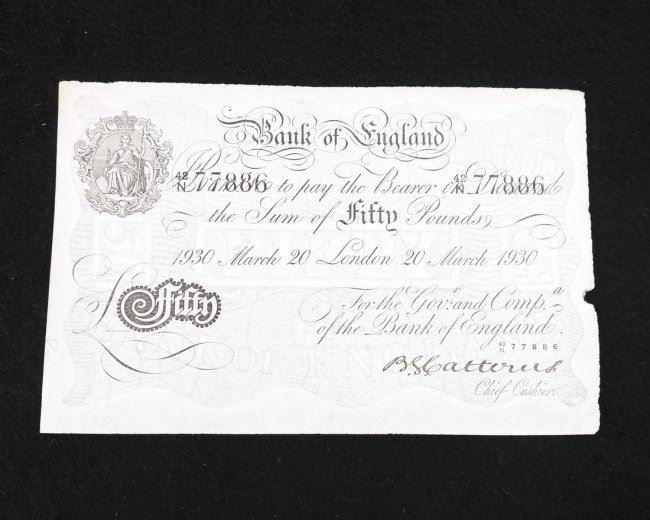 Bank of England
42/N 77886 to pay the Bearer on 42/N 77886
the Sum of Fifty Pounds
1930 March 20 London 20 March 1930
£ Fifty
For the Gov.r and Comp.a
of the Bank of England.
42/N 77886
B.G. Catterns
Chief Cashier.